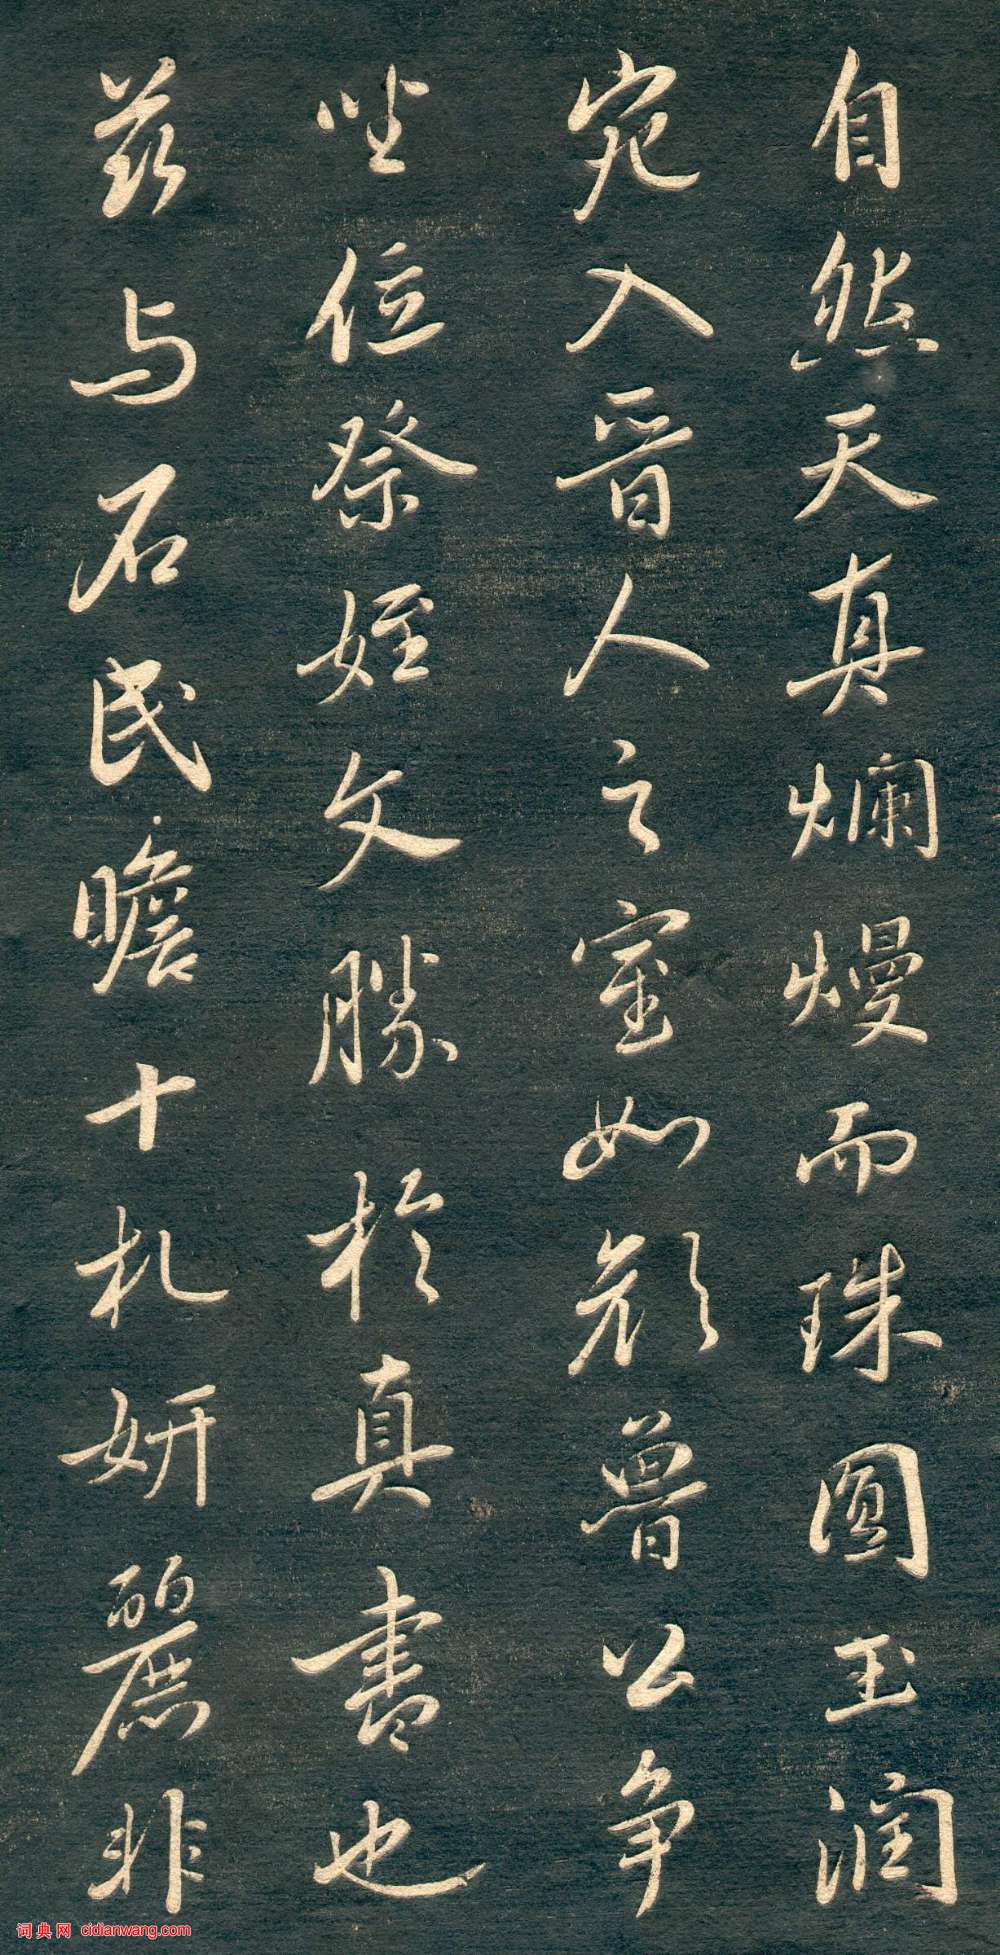 自然天真爛熳而珠圓玉润
宛入晉人之室如顔魯公争
坐位祭姪文勝於真書也
兹与石民瞻十札妍麗非
词典网 cidianwang.com